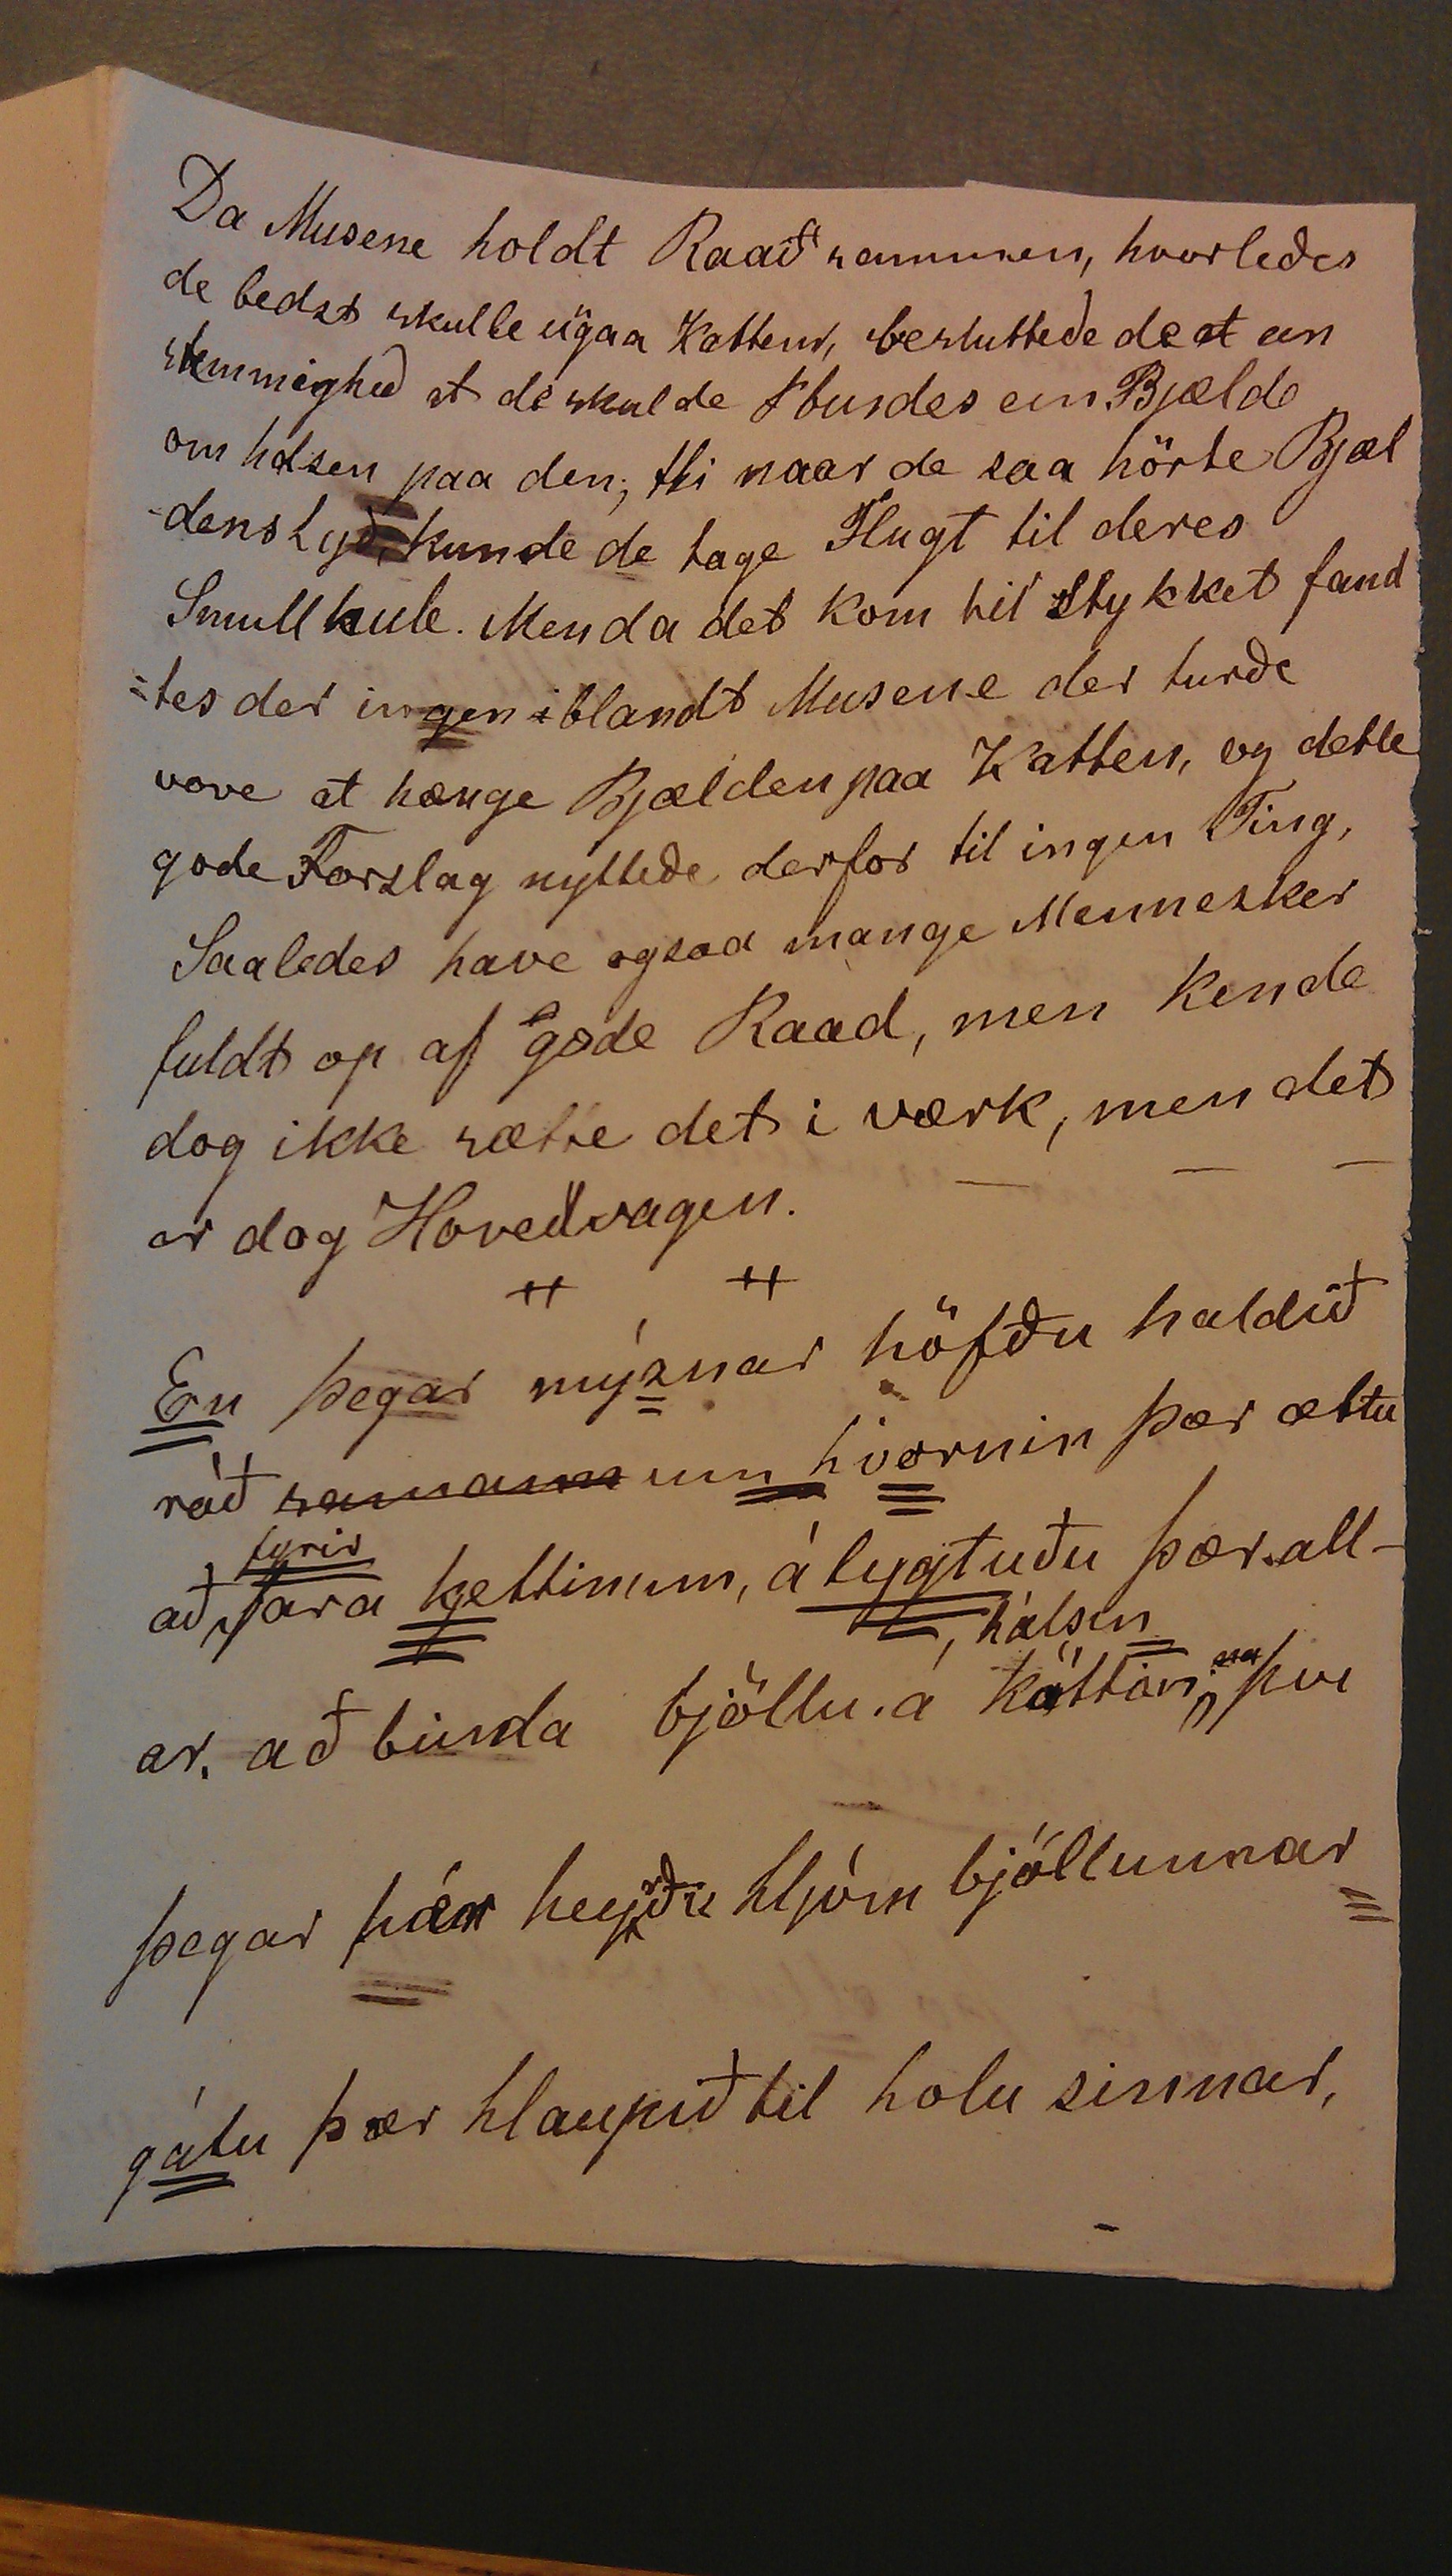 Da Musene holdt Raað sammen, hvorleðes
de bedst skulle ügaa Katten, besluttede de at een
stemmighed at de skulde bindes em Bjælde
om halsen paa den; thi naar de saa hörte Bjæl
-dens Lyð, kunde de tage Flugt til deres
Smullhule. Men da det kom til Stykket fand
=tes der ingen iblandt Musene der turðe
vove at hænge Bjælden paa Katten, og dette
gode Forslag nyttede derfor til ingen Ting,
Saaledes have ogsaa mange Mennesker
fuldt op af gode Raad, men kende
dog ikke sætte det i værk, men det
er dog Hovedvagen.
En þegar mýsnar höfðu haldið
ráð samann um hvornin þær ættu
að fara fyrir kettinum, álygtuðu þær all-
ar. að binda bjöllu á hálsin kattarins því
þegar þær heyrðu hljóm bjöllunnar
gátu þær hlaupið til holu sinnar,